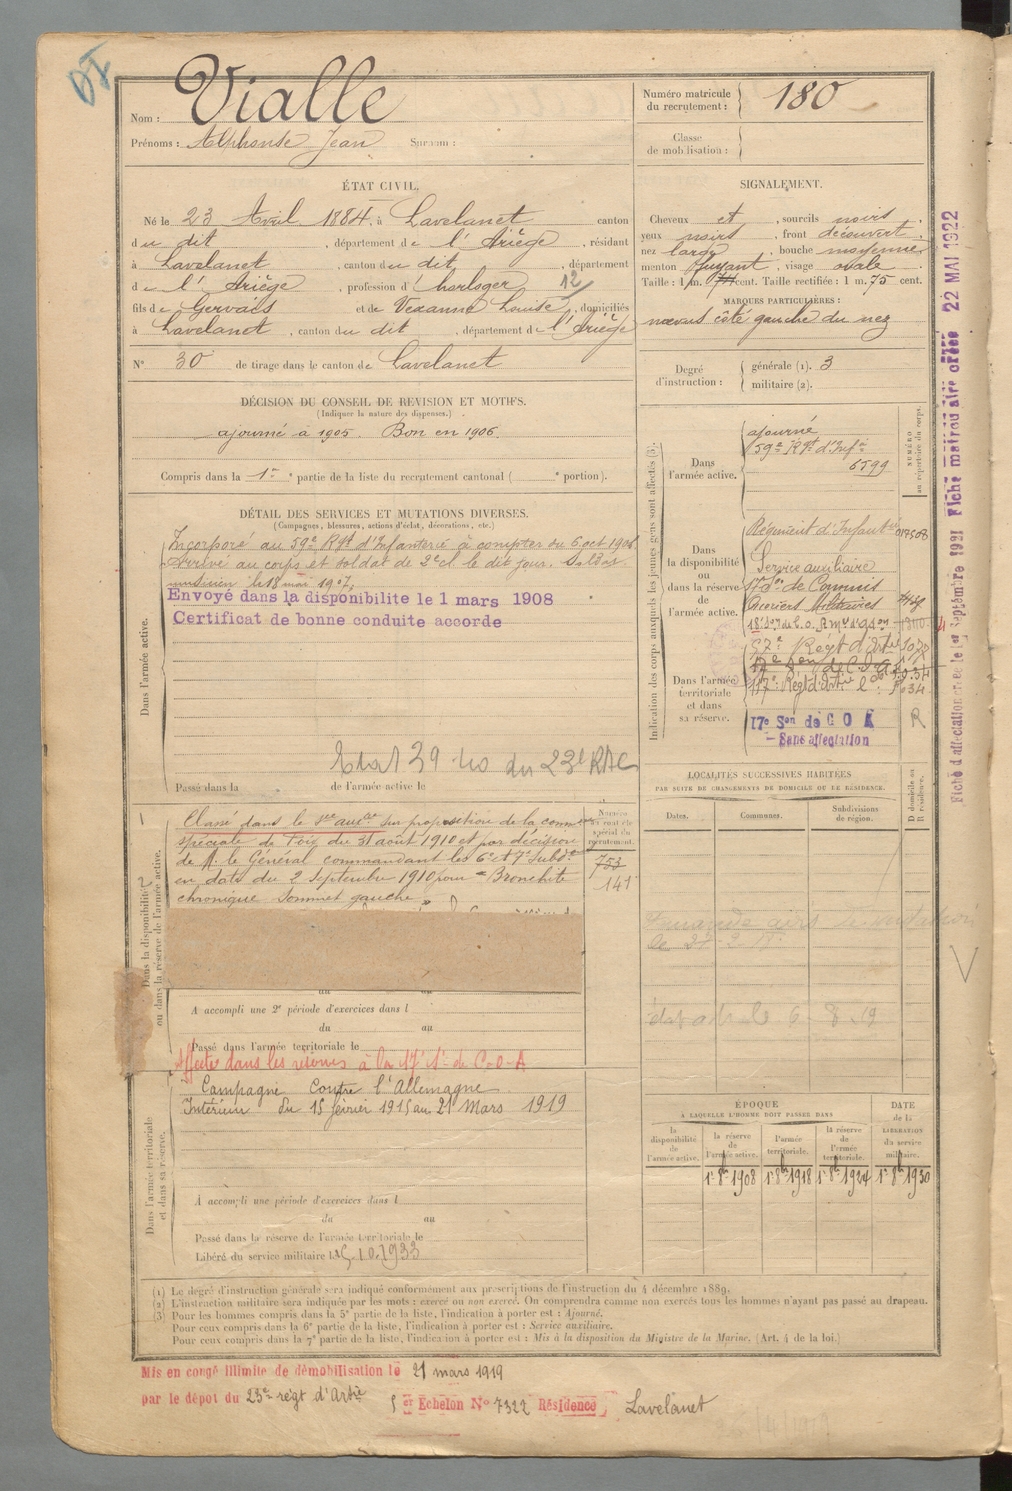 VI
Nom : Vialle
Prénoms : Alphonse Jean Surnom :
Numéro matricule du recrutement : 180
Classe de mobilisation :
ÉTAT CIVIL.
Né le 23 Avril 1884, à Lavelanet canton
du dit, département de l'Ariège, résidant
à Lavelanet, canton du dit, département
de l'Ariège, profession d'horloger 12
fils de Gervais et de Vexanne Louise, domiciliés
à Lavelanet, canton du dit, département de l'Ariège
N° 30 de tirage dans le canton de Lavelanet
SIGNALEMENT.
Cheveux et, sourcils noirs
yeux noirs, front découvert
nez large, bouche moyenne
menton fuyant, visage ovale
Taille : 1 m. cent. Taille rectifiée : 1 m. 75 cent.
MARQUES PARTICULIÈRES :
nævus côté gauche du nez
Degré d'instruction : générale (1). 3
militaire (2).
DÉCISION DU CONSEIL DE REVISION ET MOTIFS.
(Indiquer la nature des dispenses.)
ajourné à 1905. Bon en 1906.
Compris dans la 1re partie de la liste du recrutement cantonal ( e portion).
DÉTAIL DES SERVICES ET MUTATIONS DIVERSES.
(Campagnes, blessures, actions d'éclat, décorations, etc.)
Dans l'armée active.
Incorporé au 59e Rgt d'Infanterie à compter du 6 oct 1906
Arrivé au corps et soldat de 2e cl. le dit jour. Soldat
musicien le 18 mai 1907.
Envoyé dans la disponibilite le 1 mars 1908
Certificat de bonne conduite accorde
Etat 39 du 23e RAC
Passé dans la de l'armée active le
Indication des corps auxquels les jeunes gens sont affectés (3).
NUMÉRO au répertoire du corps.
Dans l'armée active.
ajourné
59e Rgt d'Infie
6599
Dans la disponibilité ou dans la réserve de l'armée active.
Régiment d'Infanterie
Service auxiliaire
17e Son de Commis
Ouvriers Militaires
57e Régt d'Artie
Dans l'armée territoriale et dans sa réserve.
117e Régt d'Artie
17e Son de C O A
- Sans affectation
R
Fiche d'affectation créée le 1er Septembre 1921 Fiche matricule créée 22 MAI 1922
Dans la disponibilité ou dans la réserve de l'armée active.
Classé dans le sce auxre sur proposition de la comm
spéciale de Foix du 31 août 1910 et par décision
de M. le Général commandant les 6e et 7e Subdons
en date du 2 Septembre 1910 pour "Bronchite
chronique sommet gauche"
Numéro au contrôle spécial du recrutement.
753
141
du au
A accompli une 2e période d'exercices dans l
du au
Passé dans l'armée territoriale le
Affecté dans les réserves à la 17e Son de C.O.A
LOCALITÉS SUCCESSIVES HABITÉES
PAR SUITE DE CHANGEMENTS DE DOMICILE OU DE RÉSIDENCE.
Dates. Communes. Subdivisions de région. D domicile ou R résidence.
6 . 8 . 19
Dans l'armée territoriale et dans sa réserve.
Campagne contre l'Allemagne
Intérieur du 15 février 1915 au 21 Mars 1919
A accompli une période d'exercices dans l
du au
Passé dans la réserve de l'armée territoriale le
Libéré du service militaire le 5.10.1933
ÉPOQUE
A LAQUELLE L'HOMME DOIT PASSER DANS
la disponibilité de l'armée active. la réserve de l'armée active. l'armée territoriale. la réserve de l'armée territoriale.
DATE de la LIBÉRATION du service militaire.
1er 8bre 1908 1er 8bre 1918 1er 8bre 1924 1er 8bre 1930
(1) Le degré d'instruction générale sera indiqué conformément aux prescriptions de l'instruction du 4 décembre 1889.
(2) L'instruction militaire sera indiquée par les mots : exercé ou non exercé. On comprendra comme non exercés tous les hommes n'ayant pas passé au drapeau.
(3) Pour les hommes compris dans la 5e partie de la liste, l'indication à porter est : Ajourné.
Pour ceux compris dans la 6e partie de la liste, l'indication à porter est : Service auxiliaire.
Pour ceux compris dans la 7e partie de la liste, l'indication à porter est : Mis à la disposition du Ministre de la Marine. (Art. 4 de la loi.)
Mis en congé illimite de démobilisation le 21 mars 1919
par le dépot du 23e régt d'Artie 5 er Echelon N° 7322 Résidence Lavelanet